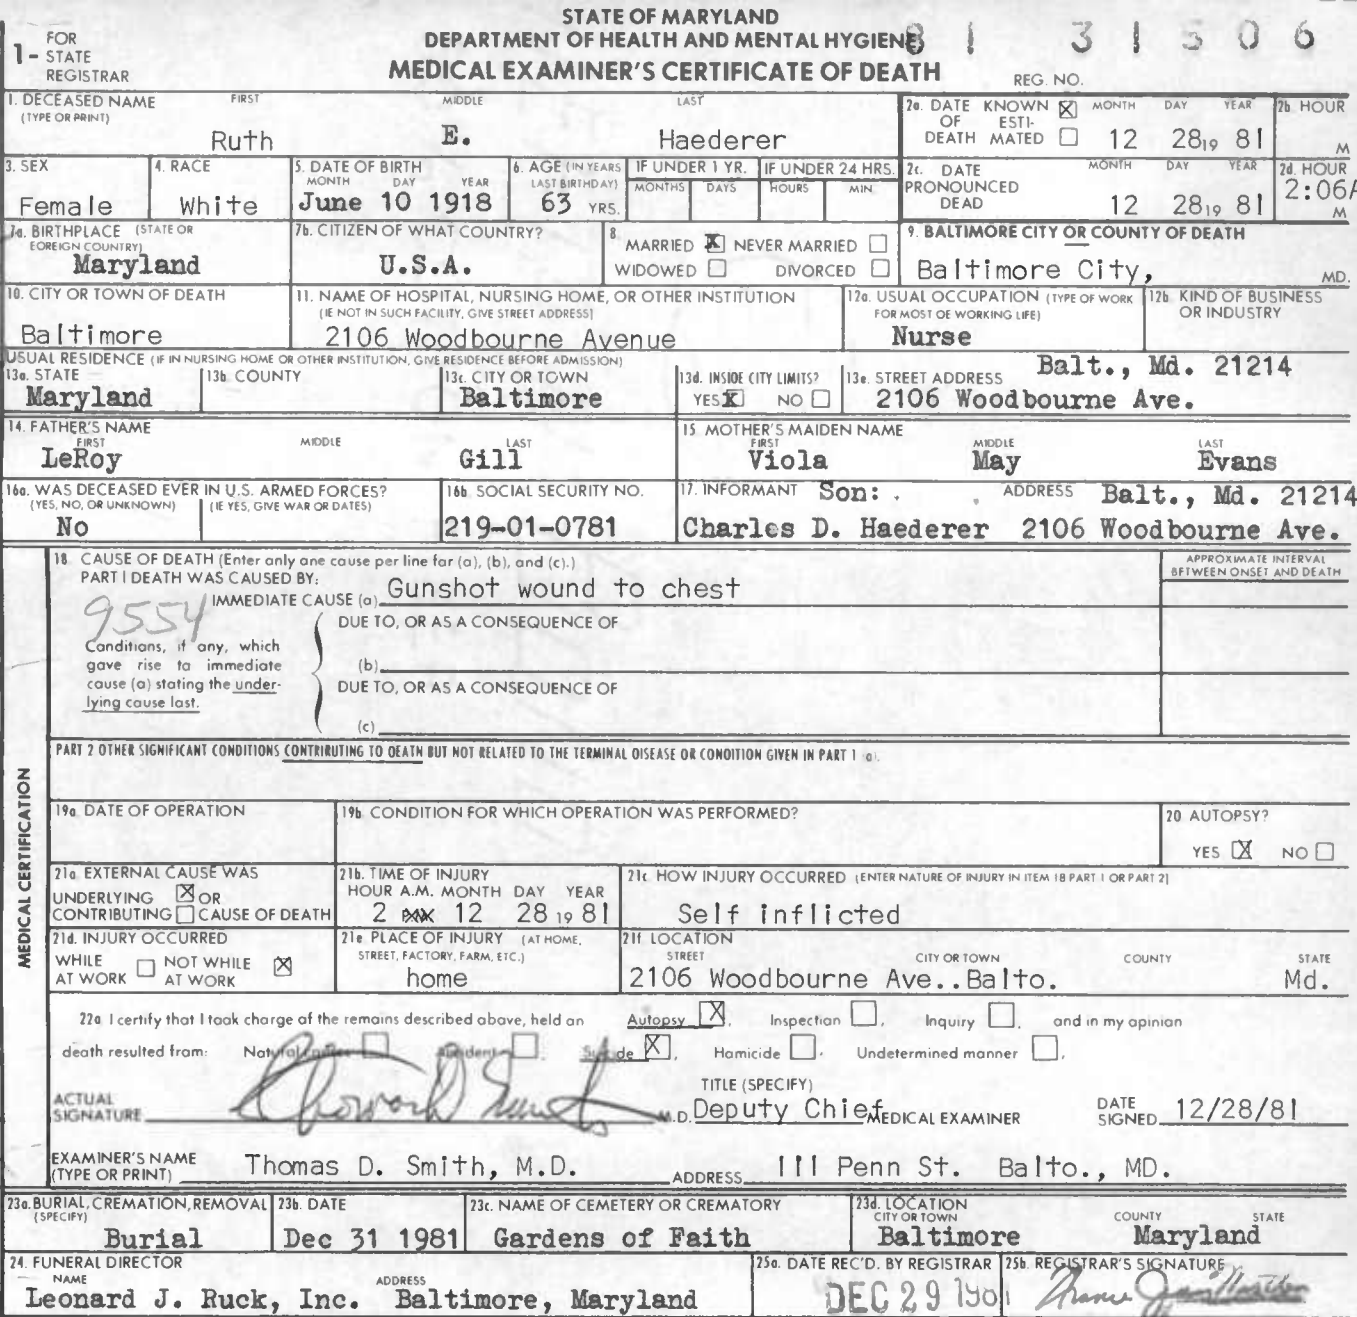 STATE OF MARYLAND
DEPARTMENT OF HEALTH AND MENTAL HYGIENE
MEDICAL EXAMINER'S CERTIFICATE OF DEATH
1- FOR STATE REGISTRAR
81 31506
REG. NO.
1. DECEASED NAME (TYPE OR PRINT) FIRST MIDDLE LAST
Ruth E. Haederer
2a. DATE OF DEATH KNOWN ☒ ESTIMATED ☐ MONTH DAY YEAR
12 28 19 81
2b. HOUR M
3. SEX
Female
4. RACE
White
5. DATE OF BIRTH MONTH DAY YEAR
June 10 1918
6. AGE (IN YEARS LAST BIRTHDAY)
63 YRS.
IF UNDER 1 YR. MONTHS DAYS
IF UNDER 24 HRS. HOURS MIN.
2c. DATE PRONOUNCED DEAD MONTH DAY YEAR
12 28 19 81
2d. HOUR
2:06A M
7a. BIRTHPLACE (STATE OR FOREIGN COUNTRY)
Maryland
7b. CITIZEN OF WHAT COUNTRY?
U.S.A.
8. MARRIED ☒ NEVER MARRIED ☐
WIDOWED ☐ DIVORCED ☐
9. BALTIMORE CITY OR COUNTY OF DEATH
Baltimore City, MD.
10. CITY OR TOWN OF DEATH
Baltimore
11. NAME OF HOSPITAL, NURSING HOME, OR OTHER INSTITUTION
(IF NOT IN SUCH FACILITY, GIVE STREET ADDRESS)
2106 Woodbourne Avenue
12a. USUAL OCCUPATION (TYPE OF WORK FOR MOST OF WORKING LIFE)
Nurse
12b. KIND OF BUSINESS OR INDUSTRY
USUAL RESIDENCE (IF IN NURSING HOME OR OTHER INSTITUTION, GIVE RESIDENCE BEFORE ADMISSION)
13a. STATE
Maryland
13b. COUNTY
13c. CITY OR TOWN
Baltimore
13d. INSIDE CITY LIMITS?
YES ☒ NO ☐
13e. STREET ADDRESS Balt., Md. 21214
2106 Woodbourne Ave.
14. FATHER'S NAME FIRST MIDDLE LAST
LeRoy Gill
15. MOTHER'S MAIDEN NAME FIRST MIDDLE LAST
Viola May Evans
16a. WAS DECEASED EVER IN U.S. ARMED FORCES?
(YES, NO, OR UNKNOWN) (IF YES, GIVE WAR OR DATES)
No
16b. SOCIAL SECURITY NO.
219-01-0781
17. INFORMANT Son: ADDRESS Balt., Md. 21214
Charles D. Haederer 2106 Woodbourne Ave.
MEDICAL CERTIFICATION
18. CAUSE OF DEATH (Enter only one cause per line for (a), (b), and (c).)
PART I DEATH WAS CAUSED BY:
IMMEDIATE CAUSE (a) Gunshot wound to chest
9554
APPROXIMATE INTERVAL BETWEEN ONSET AND DEATH
Conditions, if any, which gave rise to immediate cause (a) stating the underlying cause last.
DUE TO, OR AS A CONSEQUENCE OF
(b)
DUE TO, OR AS A CONSEQUENCE OF
(c)
PART 2 OTHER SIGNIFICANT CONDITIONS CONTRIBUTING TO DEATH BUT NOT RELATED TO THE TERMINAL DISEASE OR CONDITION GIVEN IN PART 1 (a).
19a. DATE OF OPERATION
19b. CONDITION FOR WHICH OPERATION WAS PERFORMED?
20. AUTOPSY?
YES ☒ NO ☐
21a. EXTERNAL CAUSE WAS
UNDERLYING ☒ OR
CONTRIBUTING ☐ CAUSE OF DEATH
21b. TIME OF INJURY
HOUR A.M. MONTH DAY YEAR
2 12 28 19 81
21c. HOW INJURY OCCURRED (ENTER NATURE OF INJURY IN ITEM 18 PART 1 OR PART 2)
Self inflicted
21d. INJURY OCCURRED
WHILE AT WORK ☐ NOT WHILE AT WORK ☒
21e. PLACE OF INJURY (AT HOME, STREET, FACTORY, FARM, ETC.)
home
21f. LOCATION
STREET CITY OR TOWN COUNTY STATE
2106 Woodbourne Ave..Balto. Md.
22a. I certify that I took charge of the remains described above, held an Autopsy ☒, Inspection ☐, Inquiry ☐, and in my opinion
death resulted from: Natural causes ☐ Accident ☐, Suicide ☒, Homicide ☐, Undetermined manner ☐.
ACTUAL SIGNATURE M.D.
TITLE (SPECIFY)
Deputy Chief MEDICAL EXAMINER
DATE SIGNED 12/28/81
EXAMINER'S NAME (TYPE OR PRINT) Thomas D. Smith, M.D. ADDRESS 111 Penn St. Balto., MD.
23a. BURIAL, CREMATION, REMOVAL (SPECIFY)
Burial
23b. DATE
Dec 31 1981
23c. NAME OF CEMETERY OR CREMATORY
Gardens of Faith
23d. LOCATION
CITY OR TOWN COUNTY STATE
Baltimore Maryland
24. FUNERAL DIRECTOR
NAME ADDRESS
Leonard J. Ruck, Inc. Baltimore, Maryland
25a. DATE REC'D. BY REGISTRAR
DEC 29 1981
25b. REGISTRAR'S SIGNATURE